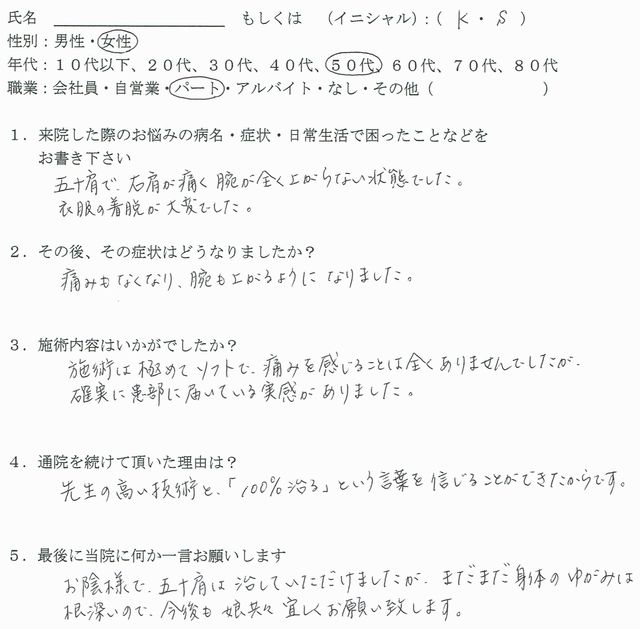 氏名　もしくは　（イニシャル）：（ K・S ）
性別：男性・女性
年代：１０代以下、２０代、３０代、４０代、５０代、６０代、７０代、８０代
職業：会社員・自営業・パート・アルバイト・なし・その他（　　　　　）
１．来院した際のお悩みの病名・症状・日常生活で困ったことなどを
お書き下さい
五十肩で、右肩が痛く腕が全く上がらない状態でした。
衣服の着脱が大変でした。
２．その後、その症状はどうなりましたか？
痛みもなくなり、腕も上がるようになりました。
３．施術内容はいかがでしたか？
施術は極めてソフトで、痛みを感じることは全くありませんでしたが、
確実に患部に届いている実感がありました。
４．通院を続けて頂いた理由は？
先生の高い技術と、「100%治る」という言葉を信じることができたからです。
５．最後に当院に何か一言お願いします
お陰様で、五十肩は治していただけましたが、まだまだ身体のゆがみは
根深いので、今後も娘共々宜しくお願い致します。